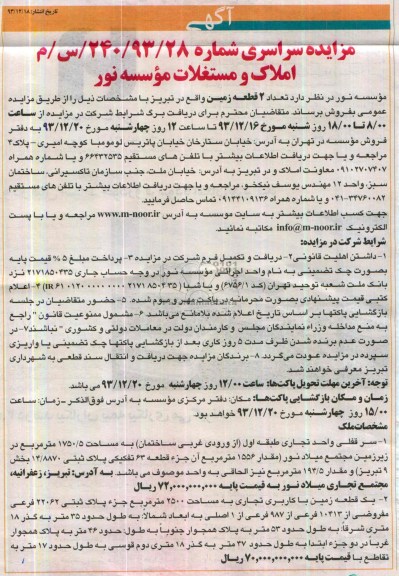 آگهی
تاریخ انتشار: ۹۳/۱۲/۱۸
مزایده سراسری شماره ۲۴۰/۹۳/۲۸/س/م
املاک و مستغلات مؤسسه نور
مؤسسه نور در نظر دارد تعداد ۲ قطعه زمین واقع در تبریز با مشخصات ذیل را از طریق مزایده
عمومی بفروش برساند متقاضیان محترم برای دریافت برگ شرایط شرکت در مزایده از ساعت
۸/۰۰ تا ۱۸/۰۰ روز شنبه مورخ ۹۳/۱۲/۱۶ تا ساعت ۱۲ روز چهارشنبه مورخ ۹۳/۱۲/۲۰ به دفتر
فروش مؤسسه در تهران به آدرس: خیابان ستارخان خیابان پاتریس لومومبا کوچه امیری - پلاک ۴
مراجعه و یا جهت دریافت اطلاعات بیشتر با تلفن های مستقیم ۶۶۴۳۲۵۳۵ و یا شماره همراه
۰۹۱۰۲۷۰۷۴۰۷ معاونت املاک و در تبریز به آدرس: خیابان ملت، جنب سازمان تاکسیرانی، ساختمان
سبز، واحد ۱۲ مهندس یوسف نیکخو، مراجعه و یا جهت دریافت اطلاعات بیشتر با تلفن های مستقیم
۰۲۱-۳۳۷۶۰۰۸۲ و یا شماره همراه ۰۹۱۲۳۱۰۹۱۳۶ تماس حاصل فرمایید.
جهت کسب اطلاعات بیشتر به سایت موسسه به آدرس www.m-noor.ir مراجعه و یا با پست
الکترونیک info@m-noor.ir مکاتبه نمایید.
شرایط شرکت در مزایده:
۱- داشتن اهلیت قانونی ۲- دریافت و تکمیل فرم شرکت در مزایده ۳- پرداخت مبلغ ۵% قیمت پایه
بصورت چک تضمینی به نام واحد اجرائی مؤسسه نور در وجه حساب جاری ۲۱۷۱۸۵۰۴۳۵ نزد
بانک ملت شعبه توحید تهران (کد ۶۷۵۶/۱) و یا شبا ۴- اعلام
کتبی قیمت پیشنهادی بصورت محرمانه در پاکت مهر و موم شده. ۵- حضور متقاضیان در جلسه
بازگشایی پاکتها بر اساس تاریخ اعلام شده بلامانع می‌باشد ۶- مشمول ممنوعیت قانون " راجع
به منع مداخله وزراء نمایندگان مجلس و کارمندان دولت در معاملات دولتی و کشوری " نباشند ۷- در
صورت عدم برنده شدن ظرف مدت ۵ روز کاری بعد از بازگشایی پاکتها چک تضمینی یا واریزی
سپرده در مزایده عودت می‌گردد ۸- برندگان مزایده جهت دریافت و انتقال سند قطعی به شهرداری
تبریز معرفی خواهند شد.
توجه: آخرین مهلت تحویل پاکت‌ها: ساعت ۱۲/۰۰ روز چهارشنبه مورخ ۹۳/۱۲/۲۰ می باشد
زمان و مکان بازگشایی پاکت‌ها: مکان: دفتر مرکزی مؤسسه به آدرس فوق‌الذکر - زمان: ساعت
۱۵/۰۰ روز چهارشنبه مورخ ۹۳/۱۲/۲۰ خواهد بود
مشخصات ملک
۱- سر قفلی واحد تجاری طبقه اول (از ورودی غربی ساختمان) به مساحت ۱۷۵۰/۵ مترمربع در
زیرزمین مجتمع میلاد نور (مقدار ۱۵۵۶ مترمربع آن جزء قطعه ۶۳ تفکیکی پلاک ثبتی ۱۴/۸۸۷۰ بخش
۹ تبریز) و مقدار ۱۹۴/۵ مترمربع نیز الحاقی به واحد موصوف می باشد. به آدرس: تبریز، زعفرانیه،
مجتمع تجاری میلاد نور به قیمت پایه ۷۲,۰۰۰,۰۰۰,۰۰۰ ریال
۲- یک قطعه زمین با کاربری تجاری به مساحت ۲۵۰۰ مترمربع جزء پلاک ثبتی ۲۲۰۶۲ فرعی
مفروضی از ۱۰۳۱۳ فرعی از ۹۸۷ فرعی از ۱ اصلی به ابعاد شمالا: به طول حدود ۳۵ متر به گذر ۱۸
متری شرقا: به طول حدود ۵۳ متر به پلاک همجوار جنوبا به طول: حدود ۴۶ متر به پلاک همجوار
غربا در دو جزء ابتدا به طول ۳۷ متر به گذر ۱۸ متری دوم قوسی به طول حدود ۱۷ متر به
تقاطع با قیمت پایه ۷۰,۰۰۰,۰۰۰,۰۰۰ ریال